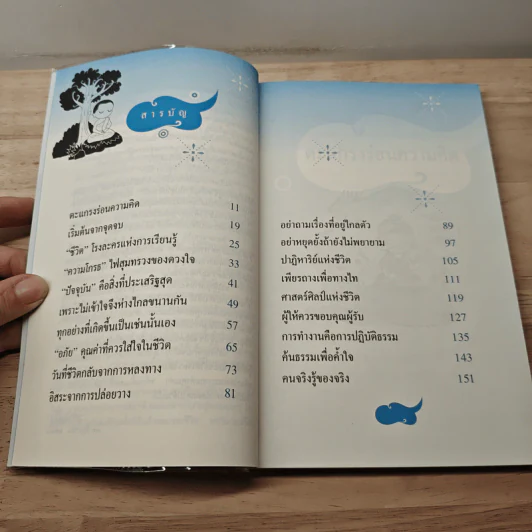 สารบัญ
ตะแกรงร่อนความคิด 11
เริ่มต้นจากจุดจบ 19
“ชีวิต” โรงละครแห่งการเรียนรู้ 25
“ความโกรธ” ไฟสุมทรวงของดวงใจ 33
“ปัจจุบัน” คือสิ่งที่ประเสริฐสุด 41
เพราะไม่เข้าใจจึงห่างไกลขนานกัน 49
ทุกอย่างที่เกิดขึ้นเป็นเช่นนั้นเอง 57
“อภัย” คุณค่าที่ควรใส่ใจในชีวิต 65
วันที่ชีวิตกลับจากการหลงทาง 73
อิสระจากการปล่อยวาง 81
อย่าถามเรื่องที่อยู่ไกลตัว 89
อย่าหยุดยั้งถ้ายังไม่พยายาม 97
ปาฏิหาริย์แห่งชีวิต 105
เพียรถางเพื่อทางไท 111
ศาสตร์ศิลป์แห่งชีวิต 119
ผู้ให้ควรขอบคุณผู้รับ 127
การทำงานคือการปฏิบัติธรรม 135
ค้นธรรมเพื่อค้ำใจ 143
คนจริงรู้ของจริง 151